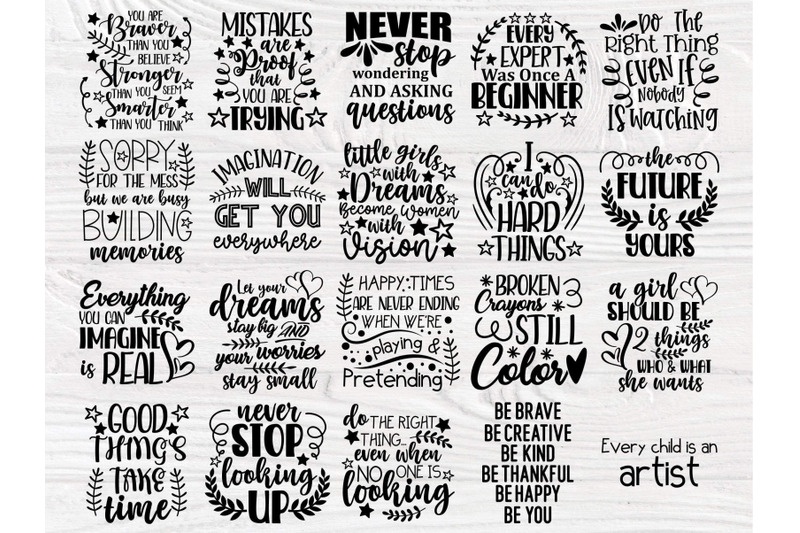 YOU ARE
Braver
THAN YOU
BELIEVE
Stronger
THAN YOU SEEM
Smarter
THAN YOU THINK
MISTAKES
are
Proof
that
YOU ARE
TRYING
NEVER
stop
wondering
AND ASKING
questions
EVERY
EXPERT
Was Once A
BEGINNER
Do The
Right Thing
EVEN IF
NOBODY
IS WATCHING
SORRY
FOR THE MESS
but we are busy
BUILDING
memories
IMAGINATION
WILL
GET YOU
everywhere
little girls
with
Dreams
Become Women
with
Vision
I
can do
HARD
THINGS
the
FUTURE
is
YOURS
Everything
YOU CAN
IMAGINE
is REAL
Let your
dreams
stay big AND
your worries
stay small
HAPPY TIMES
ARE NEVER ENDING
WHEN WE'RE
playing &
Pretending
BROKEN
Crayons
STILL
Color
a girl
SHOULD BE
2 things
WHO & WHAT
she wants
GOOD
THINGS
TAKE
time
never
STOP
looking
UP
do THE RIGHT
THING...
even when
NO ONE IS
looking
BE BRAVE
BE CREATIVE
BE KIND
BE THANKFUL
BE HAPPY
BE YOU
Every child is an
artist